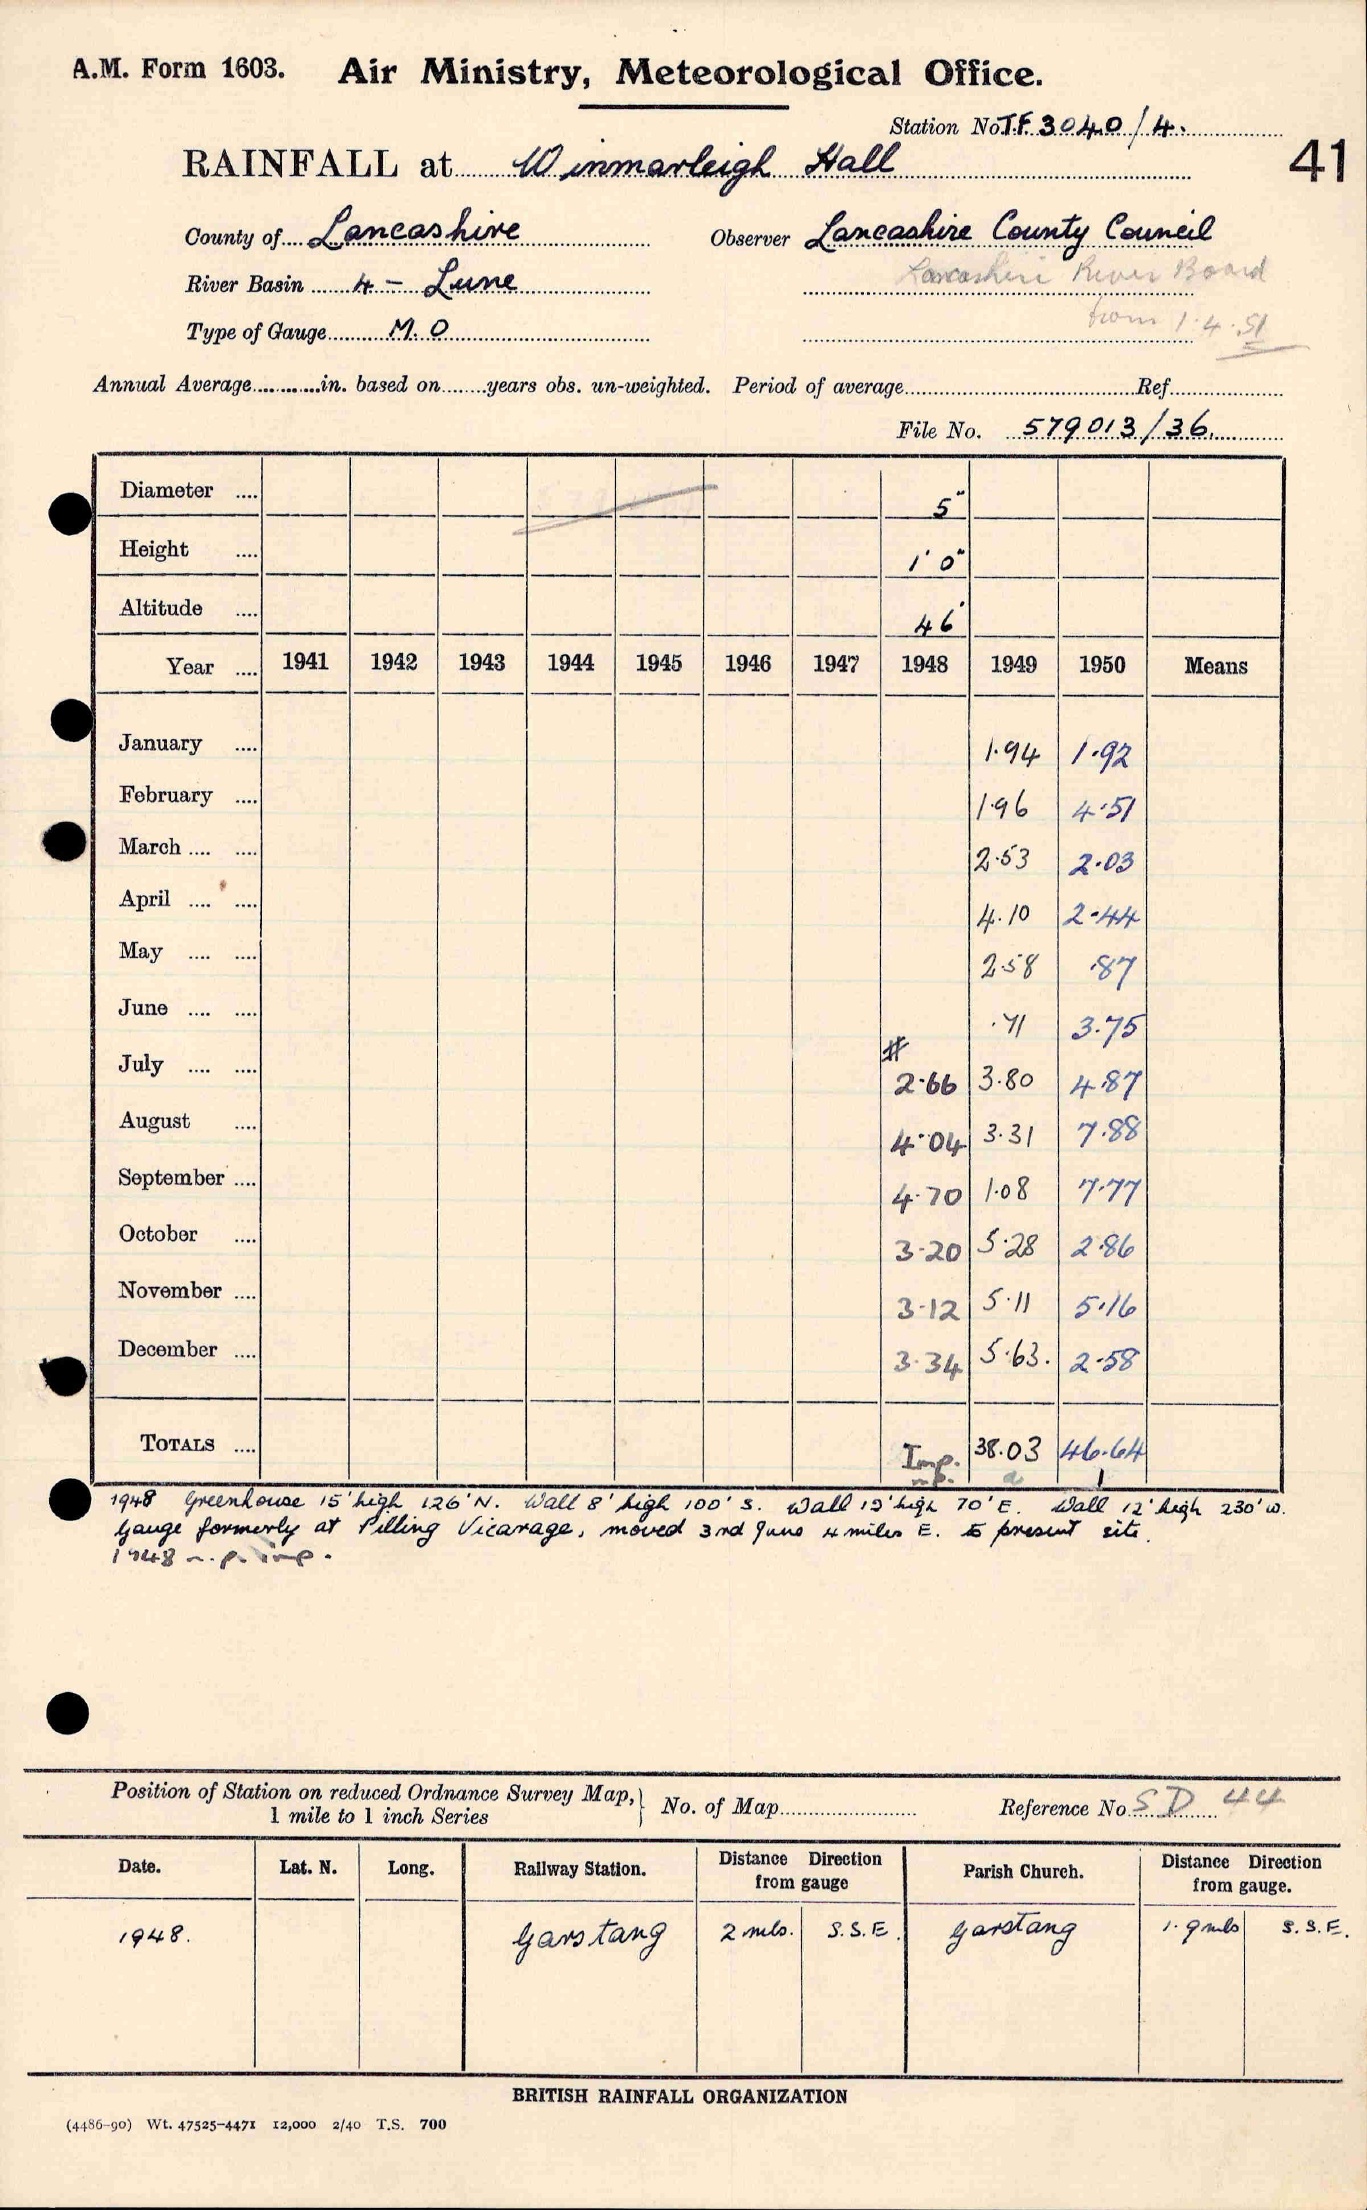 A.M. Form 1603. Air Ministry, Meteorological Office.
Station No. T.F. 3040/4.
41
RAINFALL at Winmarleigh Hall
County of Lancashire Observer Lancashire County Council
River Basin 4 - Lune Lancashire River Board
Type of Gauge M.O from 1.4.51
Annual Average in. based on years obs. un-weighted. Period of average Ref.
File No. 579013/36.
Diameter 5"
Height 1' 0"
Altitude 46'
Year 1941 1942 1943 1944 1945 1946 1947 1948 1949 1950 Means
January 1.94 1.92
February 1.96 4.51
March 2.53 2.03
April 4.10 2.44
May 2.58 .87
June .71 3.75
July # 2.66 3.80 4.87
August 4.04 3.31 7.88
September 4.70 1.08 7.77
October 3.20 5.28 2.86
November 3.12 5.11 5.16
December 3.34 5.63. 2.58
TOTALS Imp. 38.03 46.64
n.p. a 1
1948 Greenhouse 15' high 126' N. Wall 8' high 100' S. Wall high 70' E. Wall 12' high 230' W.
Gauge formerly at Pilling Vicarage, moved 3rd June 4 miles E. to present site.
1948 n.p. imp.
Position of Station on reduced Ordnance Survey Map, 1 mile to 1 inch Series No. of Map Reference No. SD 44
Date. Lat. N. Long. Railway Station. Distance Direction from gauge Parish Church. Distance Direction from gauge.
1948. Garstang 2 mls. S.S.E. Garstang 1.9 mls S.S.E.
BRITISH RAINFALL ORGANIZATION
(4486-90) Wt. 47525-4471 12,000 2/40 T.S. 700